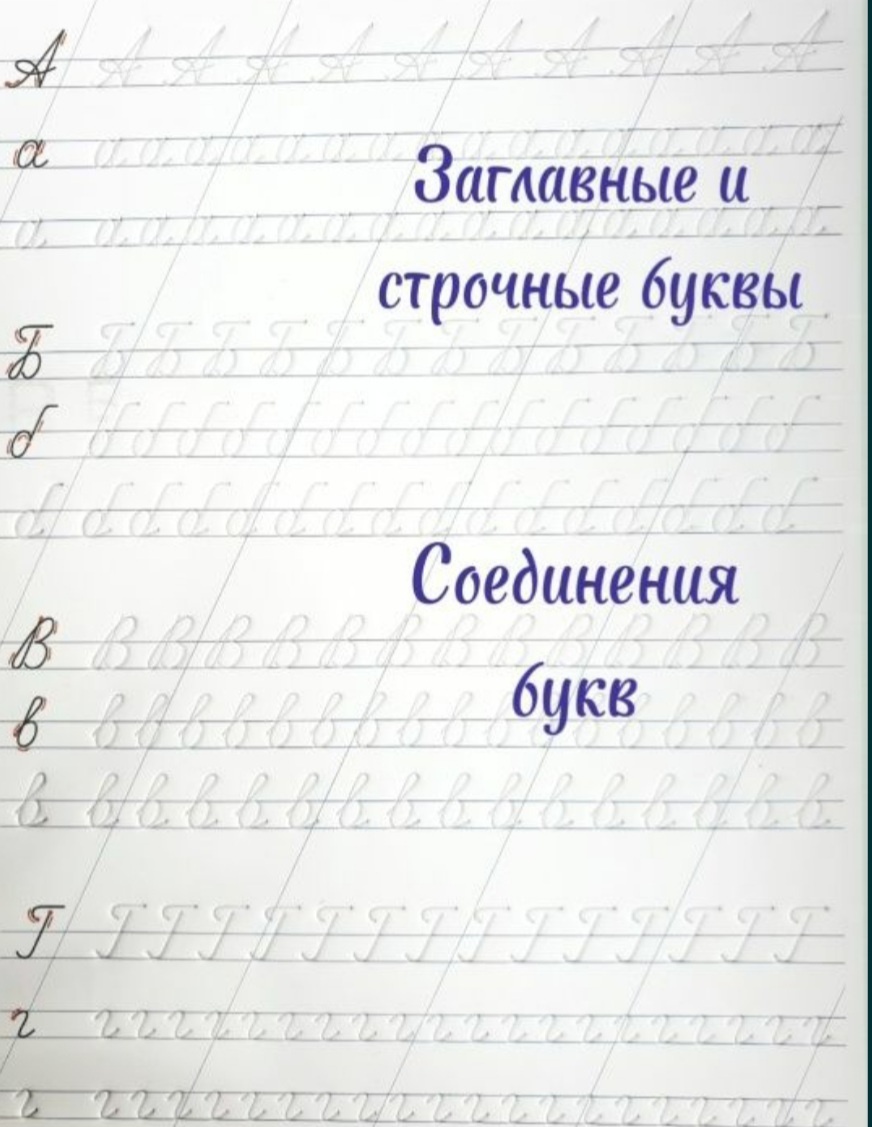 А
а
Заглавные и
а
строчные буквы
Б
б
б
Соединения
В
букв
в
в
Г
г
г